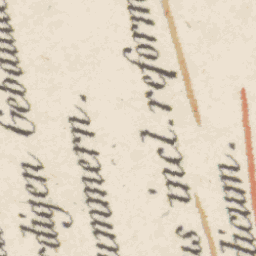 digen Gebäud
ummern.
s incl. reform
dicum.